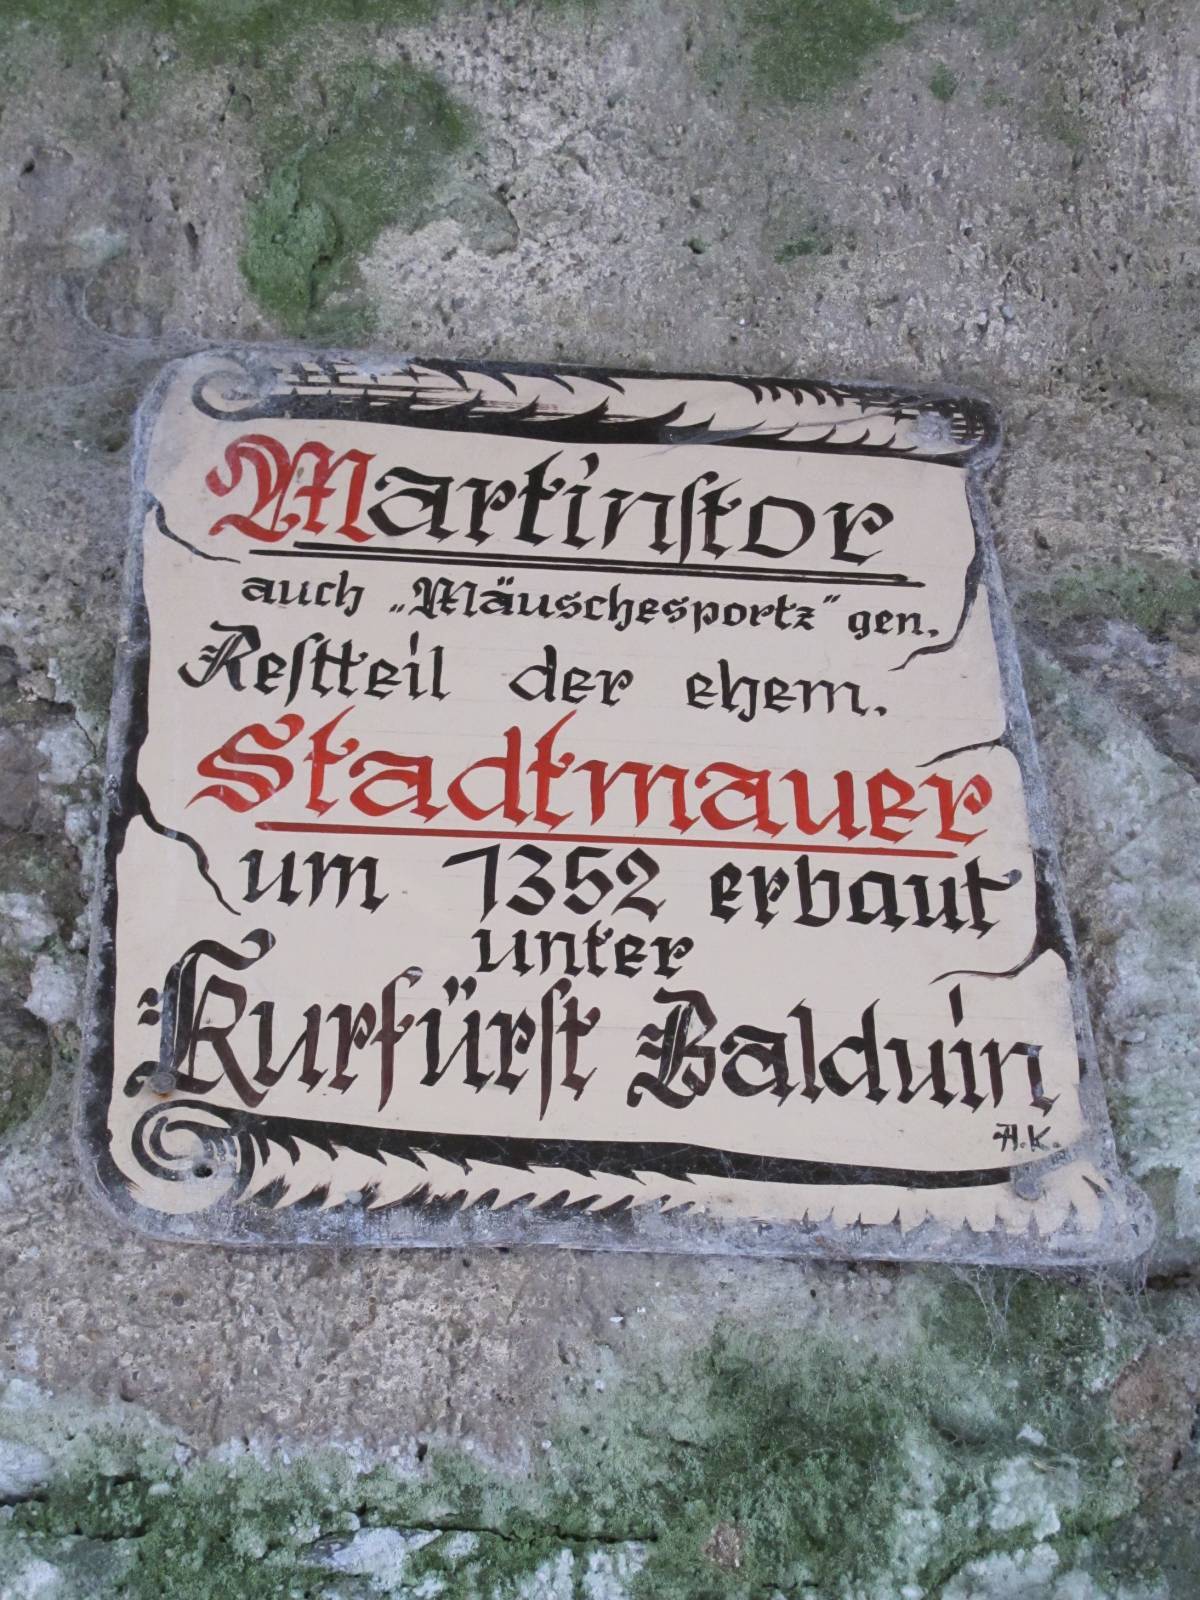 Martinſtor
auch „Mäuschesportz" gen.
Reſtteil der ehem.
Stadtmauer
um 1352 erbaut
unter
Kurfürſt Balduin
H.K.